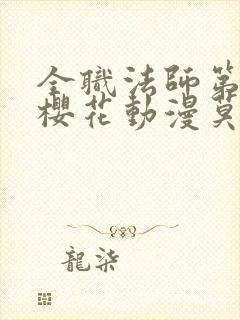 全職法師第
櫻花動漫莫
龍柒